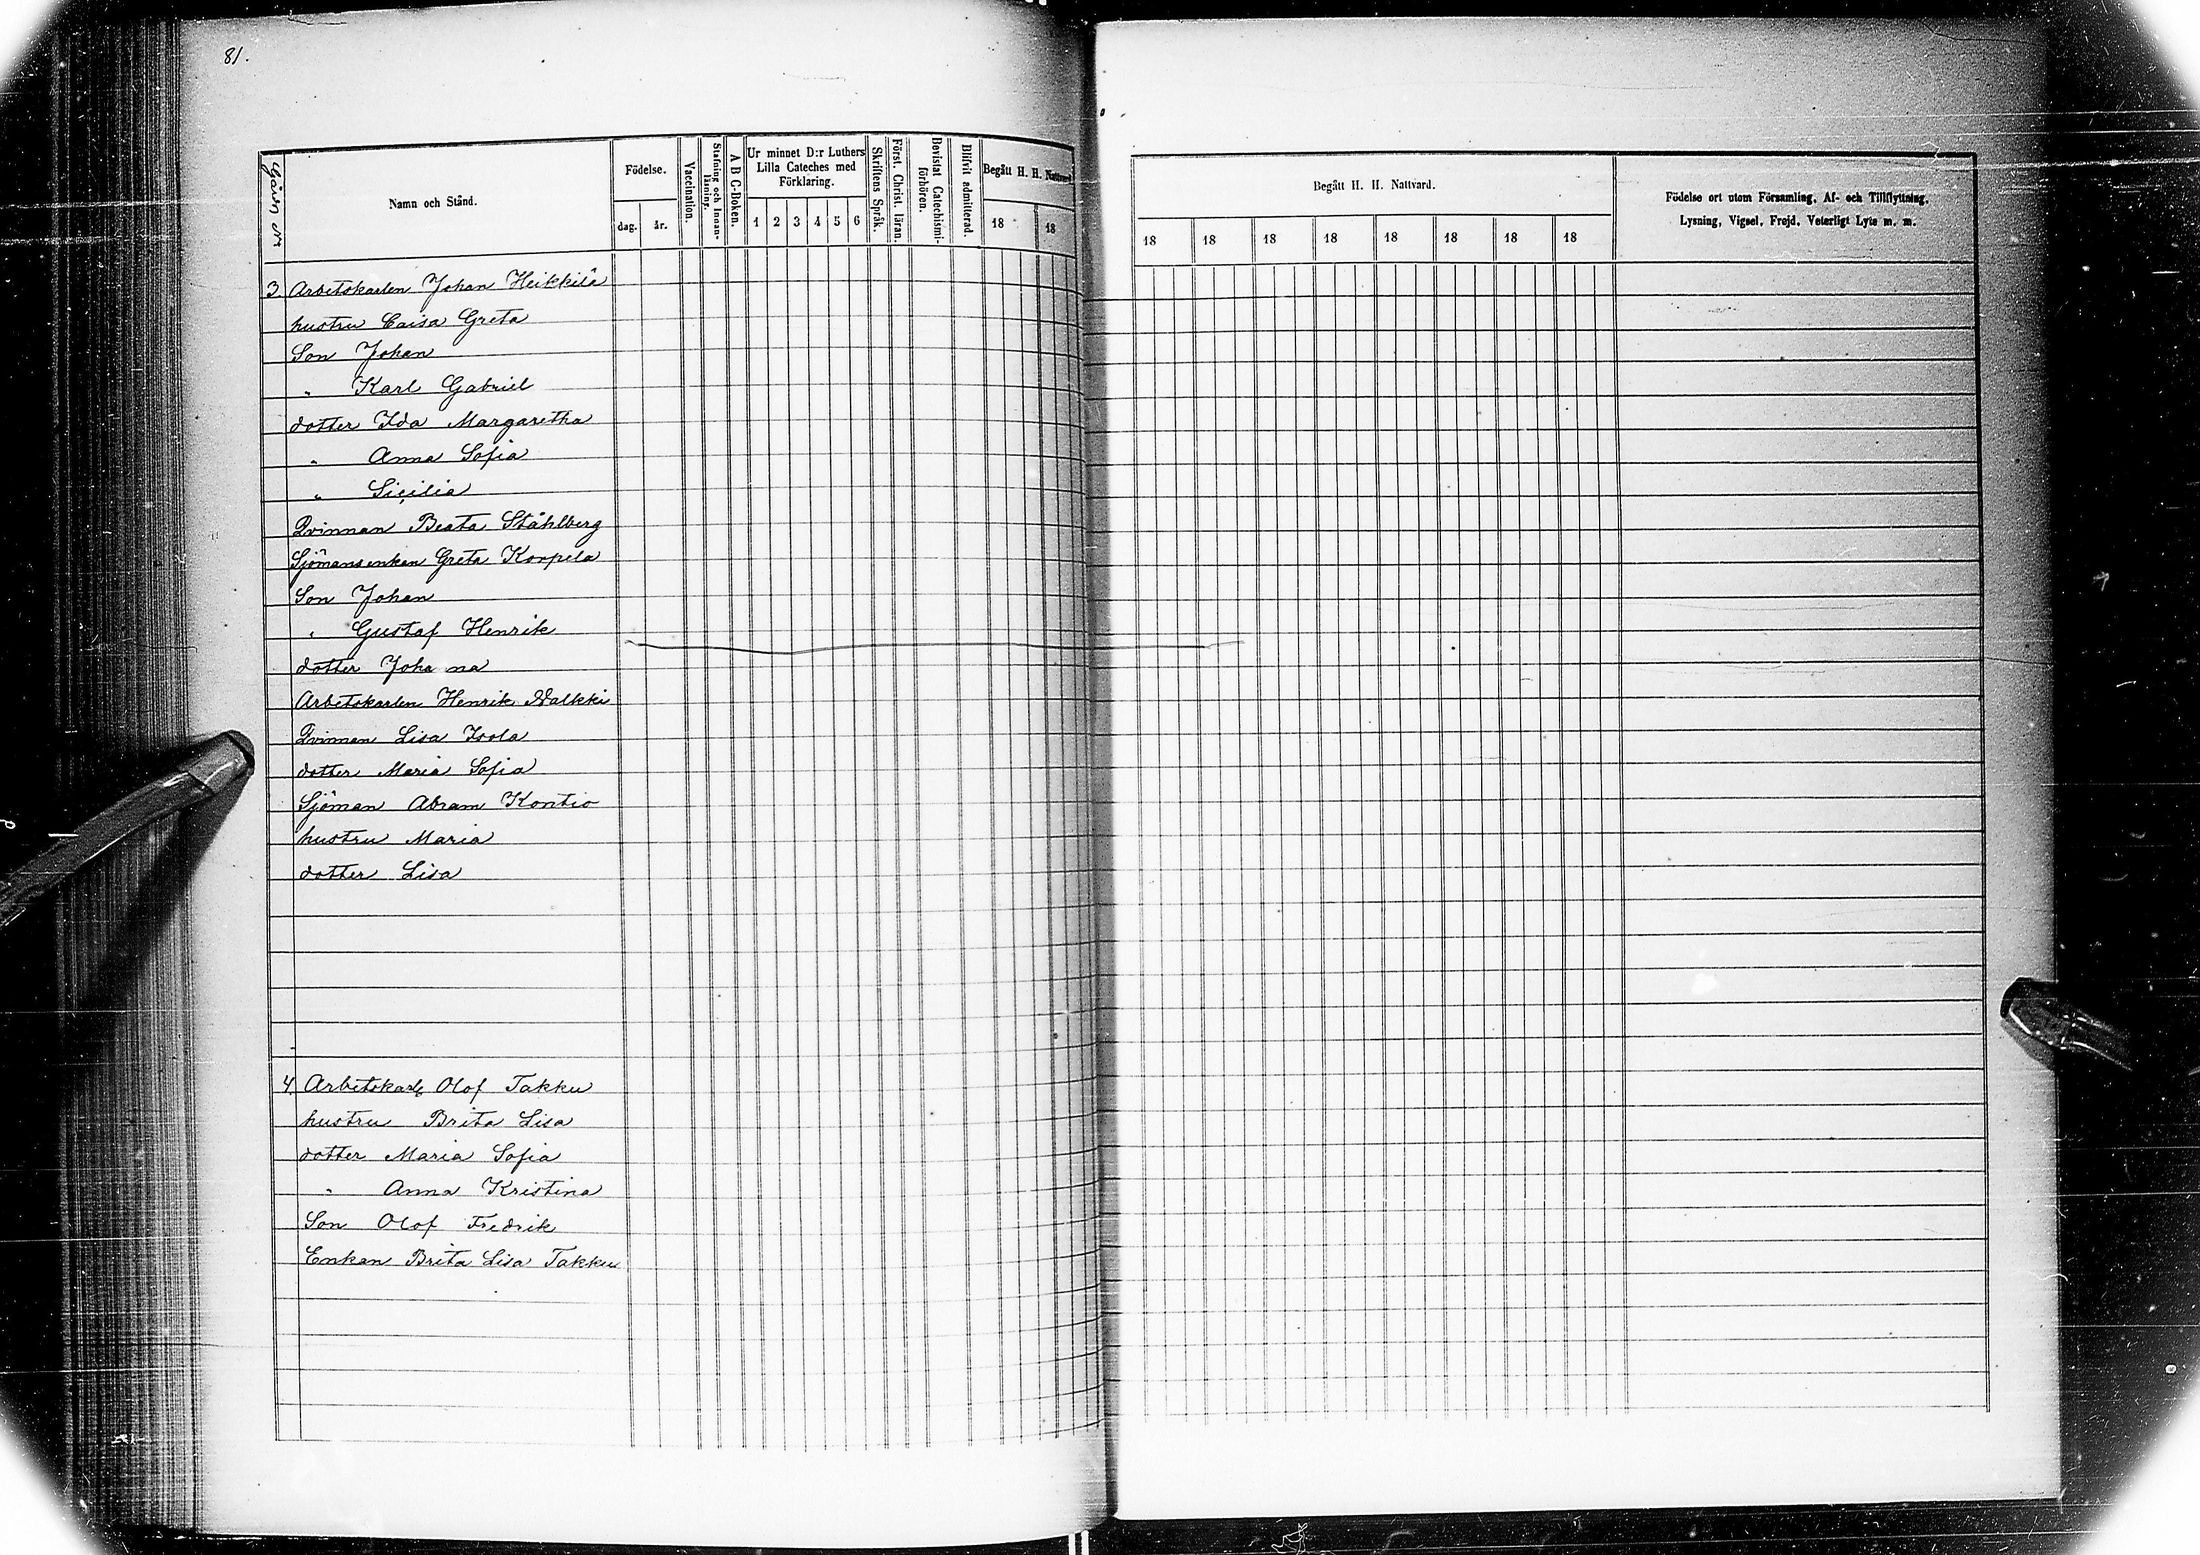 81.
Gårn nr
Namn och Stånd.
Födelse.
dag.
år.
Vaccination.
Stafning och Innanläsning.
A B C-Boken.
Ur minnet D:r Luthers
Lilla Cateches med
Förklaring.
1 2 3 4 5 6
Skriftens Språk.
Först. Christ. läran.
Bevistat Catechismi-
förhören.
Blifvit admitterad.
Begått H. H. Nattvard.
18 18
Begått H. H. Nattvard.
18 18 18 18 18 18 18 18
Födelse ort utom Församling, Af- och Tillflyttning,
Lysning, Vigsel, Frejd, Veterligt Lyte m. m.
3 Arbetskarlen Johan Heikkilä
hustru Caisa Greta
Son Johan
" Karl Gabriel
dotter Ida Margaretha
" Anna Sofia
" Sicilia
Qvinnan Beata Ståhlberg
Sjömansenkan Greta Korpela
Son Johan
" Gustaf Henrik
dotter Joha na
Arbetskarlen Henrik Walkki
Qvinnan Lisa Isola
dotter Maria Sofia
Sjöman Abram Kontio
hustru Maria
dotter Lisa
4. Arbetskarlen Olof Takku
hustru Brita Lisa
dotter Maria Sofia
" Anna Kristina
Son Olof Fredrik
Enkan Brita Lisa Takku